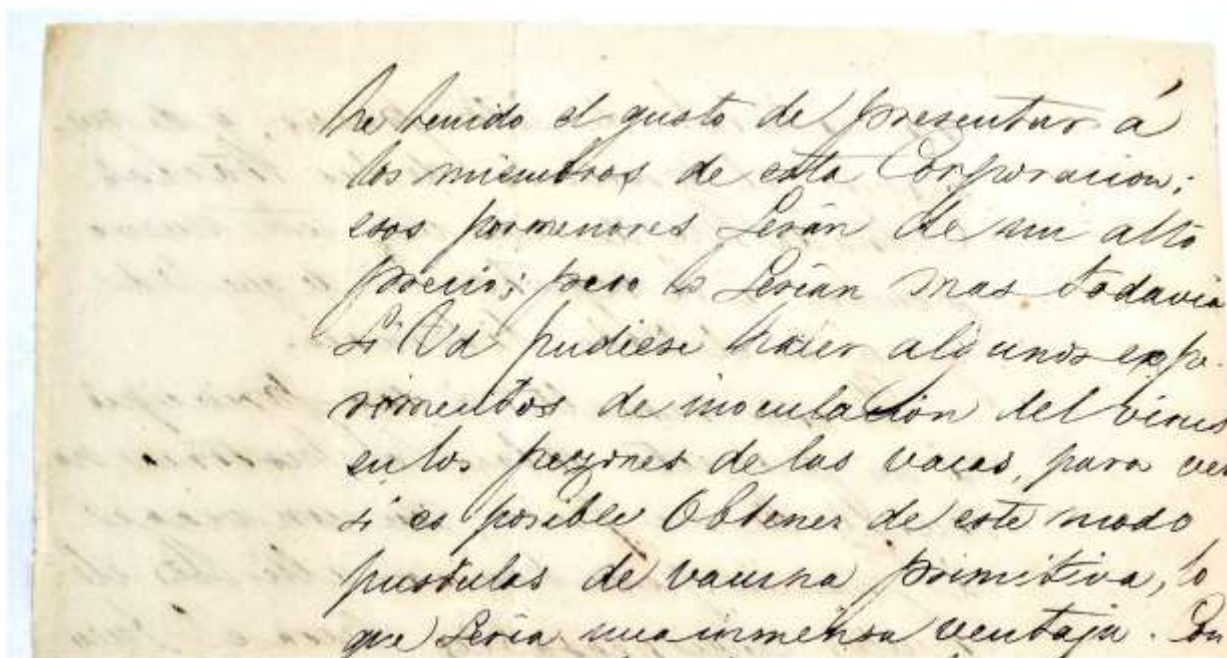 he tenido el gusto de presentar á
los miembros de esta Corporacion;
esos pormenores serán de un alto
precio; pero lo serian mas todavia
si Vd pudiese hacer algunos expe-
rimentos de inoculación del virus
en los pezones de las vacas, para ver
si es posible obtener de este modo
pústulas de vacuna primitiva, lo
que seria una inmensa ventaja. Con